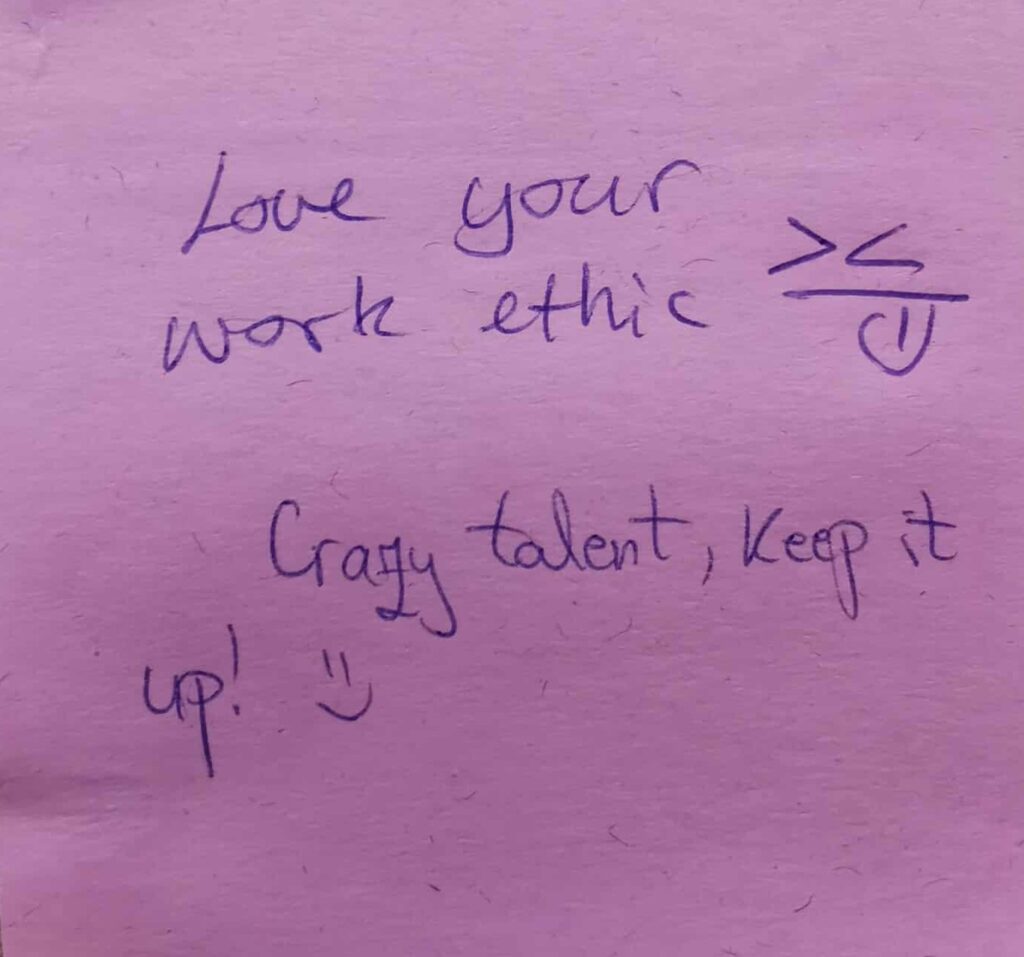 Love your
work ethic ><
Crazy talent, Keep it
up! :)